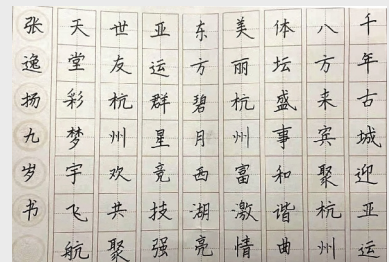 千年古城迎亚运
八方来宾聚杭州
体坛盛事和谐曲
美丽杭州富激情
东方碧月西湖亮
亚运群星竞技强
世友杭州欢共聚
天堂彩梦宇飞航
张逸扬九岁书